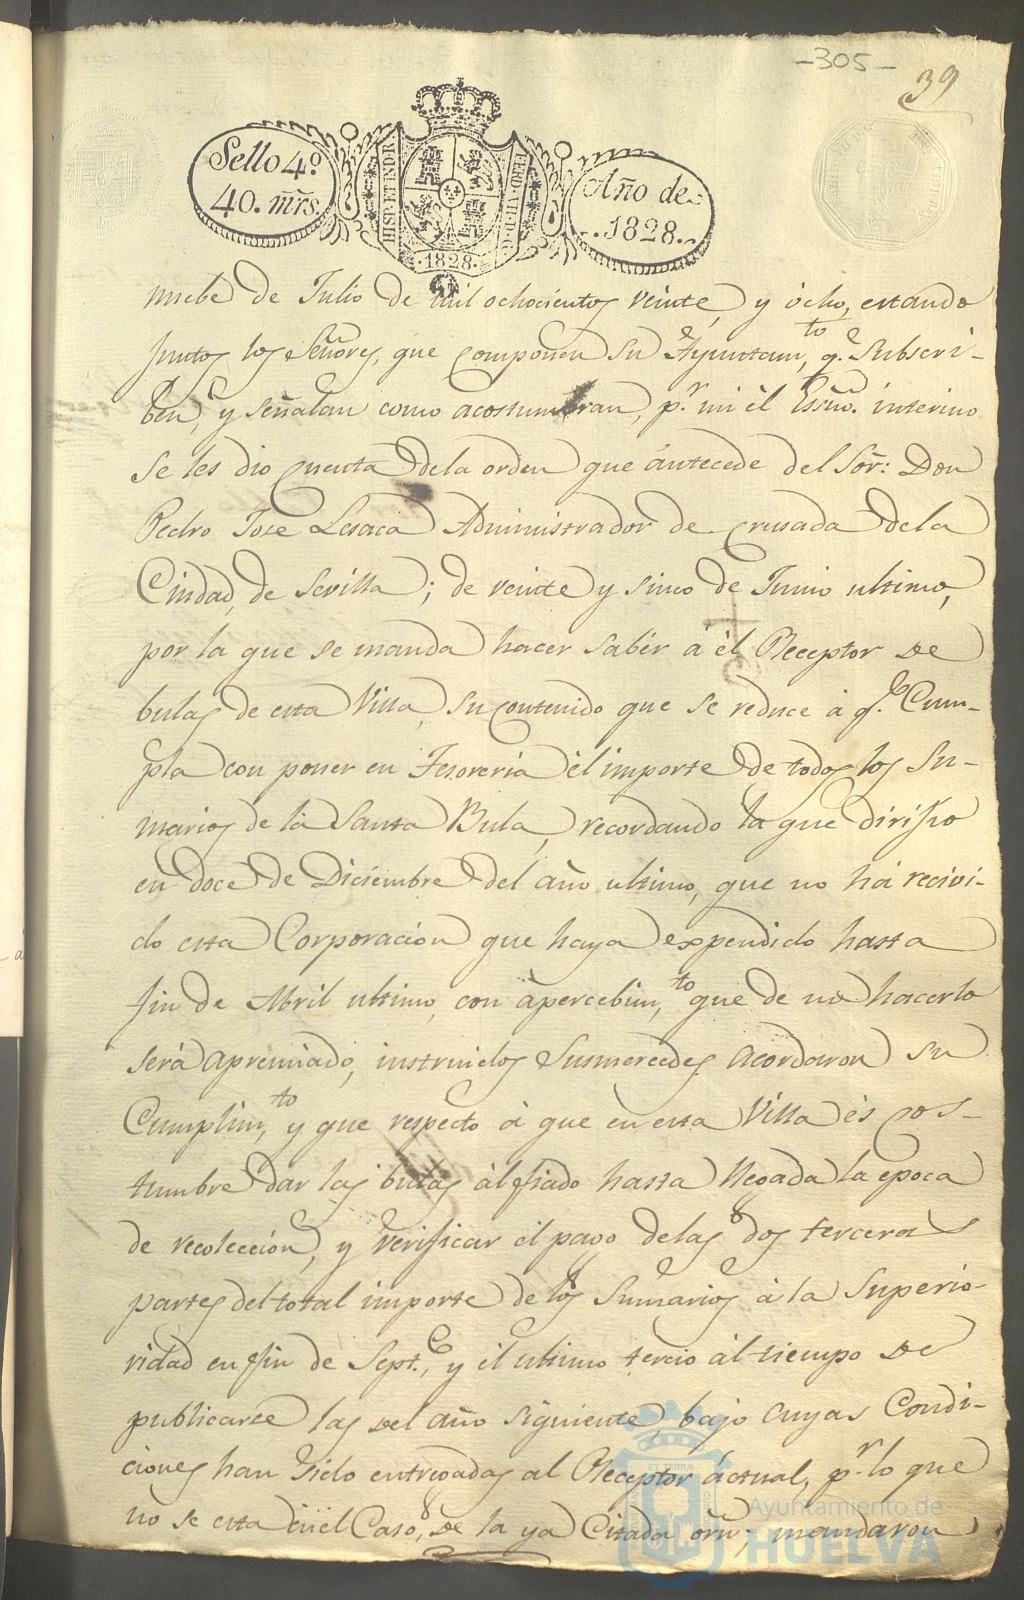 -305-
39
Sello 4º
40. mrs.
HISP. ET IND. R.
FERD. VII. D. G.
1828
Año de
1828.
nuebe de Julio de mil ochocientos veinte, y ócho, estando
juntos los Señores, que componen su Ayuntamto, q.e Subscri-
ben, y señalan como acostumbran, p.r mi él Essno. interino
se les dio cuenta dela orden que ántecede del Sor: Don
Pedro Jose Lesaca Administrador de Crusada dela
Ciudad, de Sevilla; de veinte y sinco de Junio ultimo,
por la que se manda hacer sabér á él Receptor de
bulas de esta Villa, su contenido que se reduce á q.e Cum-
pla con poner en Tesoreria él importe de todos los Su-
marios de la Santa Bula, recordando la que dirijio
en doce de Diciembre del año ultimo, que no há recivi-
do esta Corporacion que haya expendido hasta
fin de Abril ultimo, con ápercebim,to que de no hacerlo
será apremiado, instruidos Susmercedes acordaron su
Cumplim,to y que respecto á que en esta Villa és cos-
tumbre dar las bulas ál fiado hasta llegada la epoca
de recoleccion, y verificar él pago delas dos terceras
partes del total importe de los Sumarios á la Superio-
ridad en fin de Sept.e, y él ultimo tercio ál tiempo de
publicarse las del año siguiente, bajo cuyas Condi-
ciones han sido entregadas al Receptor áctual, p.r lo que
no se esta en él Caso, de la ya Citada orn, mandaron
Ayuntamiento de
HUELVA